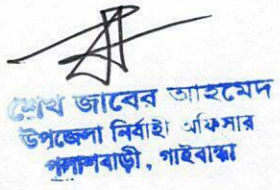 শেখ জাবের আহমেদ
উপজেলা নির্বাহী অফিসার
পলাশবাড়ী, গাইবান্ধা